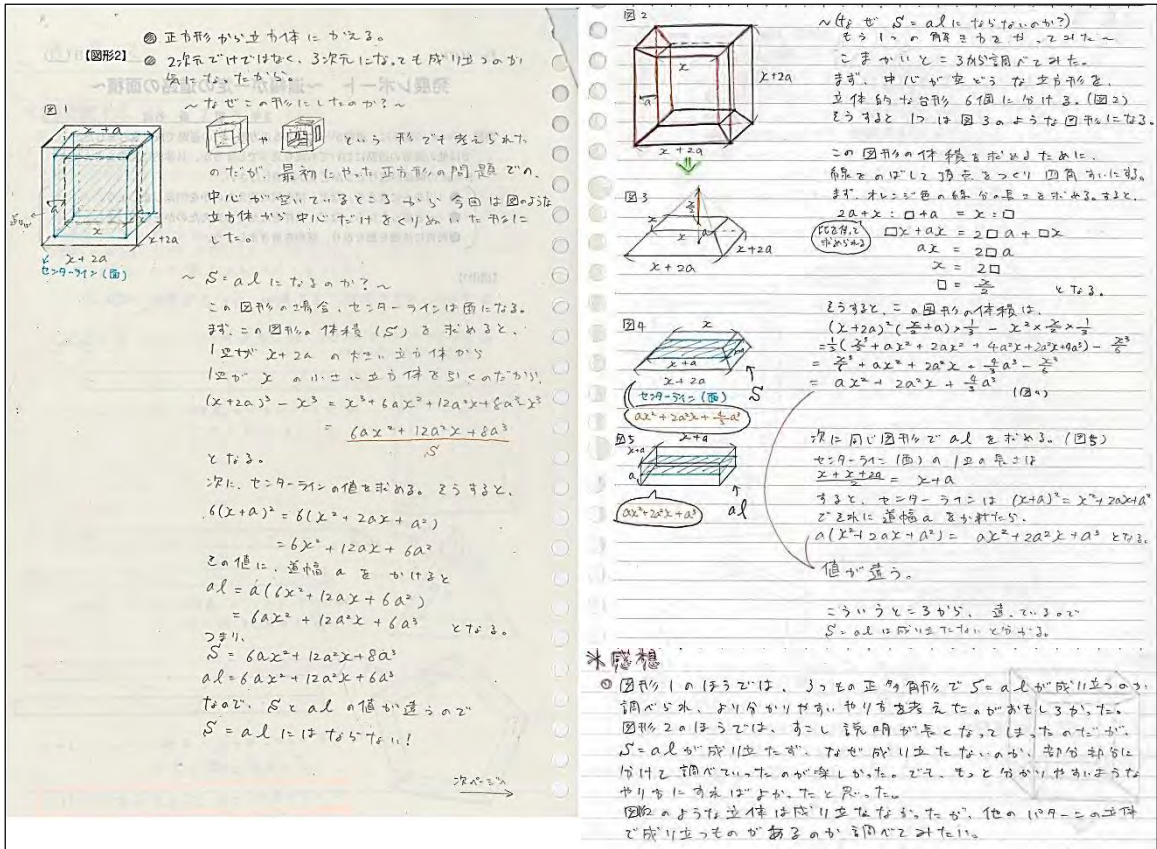 【図形2】
◎ 正方形から立方体にかえる。
◎ 2次元だけではなく、3次元になっても成り立つのか
気になったから。
～なぜこの形にしたのか？～
や という形でも考えられた
のだが、最初にやった正方形の問題での、
中心が空いているところから今回は図のような
立方体から中心だけをくりぬいた形に
した。
図1
x+a
a
x
x
x+2a
x+2a
センターライン(面)
～ S=alになるのか？～
この図形の場合、センターラインは面になる。
まず、この図形の体積(S)を求めると、
1辺が x+2a の大きい立方体から
1辺が x の小さい立方体を引くのだから、
(x+2a)³-x³ = x³+6ax²+12a²x+8a³-x³
= 6ax²+12a²x+8a³
S
となる。
次に、センターラインの値を求める。そうすると、
6(x+a)² = 6(x²+2ax+a²)
= 6x²+12ax+6a²
この値に、道幅 a をかけると
al = a(6x²+12ax+6a²)
= 6ax²+12a²x+6a³ となる。
つまり、
S = 6ax²+12a²x+8a³
al = 6ax²+12a²x+6a³
なので、Sとalの値が違うので
S=alにはならない！
次ページへ
図2
x
a
x+2a
x+2a
～(なぜ S=alにならないのか？)
もう1つの解き方をやってみた～
こまかいところから調べてみた。
まず、中心が空どうな立方形を、
立体的な台形 6個に分ける。(図2)
そうすると1つは図3のような図形になる。
この図形の体積を求めるために、
線をのばして頂点をつくり四角すいにする。
まず、オレンジ色の線分の長さを求める。すると、
図3
x/2
x
x
a
x+2a
x+2a
2a+x : □+a = x : □
比を使って
求められる
□x+ax = 2□a+□x
ax = 2□a
x = 2□
□ = x/2 となる。
そうすると、この図形の体積は、
(x+2a)²(x/2+a)×1/3 - x²×x/2×1/3
=1/3(x³/2+ax²+2ax²+4a²x+2a²x+4a³)-x³/6
= x³/6+ax²+2a²x+4/3a³-x³/6
= ax²+2a²x+4/3a³
(図4)
図4
x
x+a
x+2a
S
センターライン(面)
ax²+2a²x+4/3a³
次に同じ図形で al を求める。(図5)
センターライン(面)の1辺の長さは
x+x+2a/2 = x+a
すると、センターラインは(x+a)²=x²+2ax+a²
でそれに道幅aをかけたら、
a(x²+2ax+a²) = ax²+2a²x+a³ となる。
図5
x+a
x+a
a
al
ax²+2a²x+a³
値が違う。
こういうところから、違っているので
S=alは成り立たないと分かる。
※感想
◎ 図形1のほうでは、3つの正多角形でS=alが成り立つのか
調べられ、より分かりやすいやり方を考えたのがおもしろかった。
図形2のほうでは、すこし説明が長くなってしまったのだが、
S=alが成り立たず、なぜ成り立たないのか、部分部分に
分けて調べていったのが楽しかった。でも、もっと分かりやすいような
やり方にすればよかったと思った。
図2のような立体は成り立たなかったが、他のパターンの立体
で成り立つものがあるのか調べてみたい。